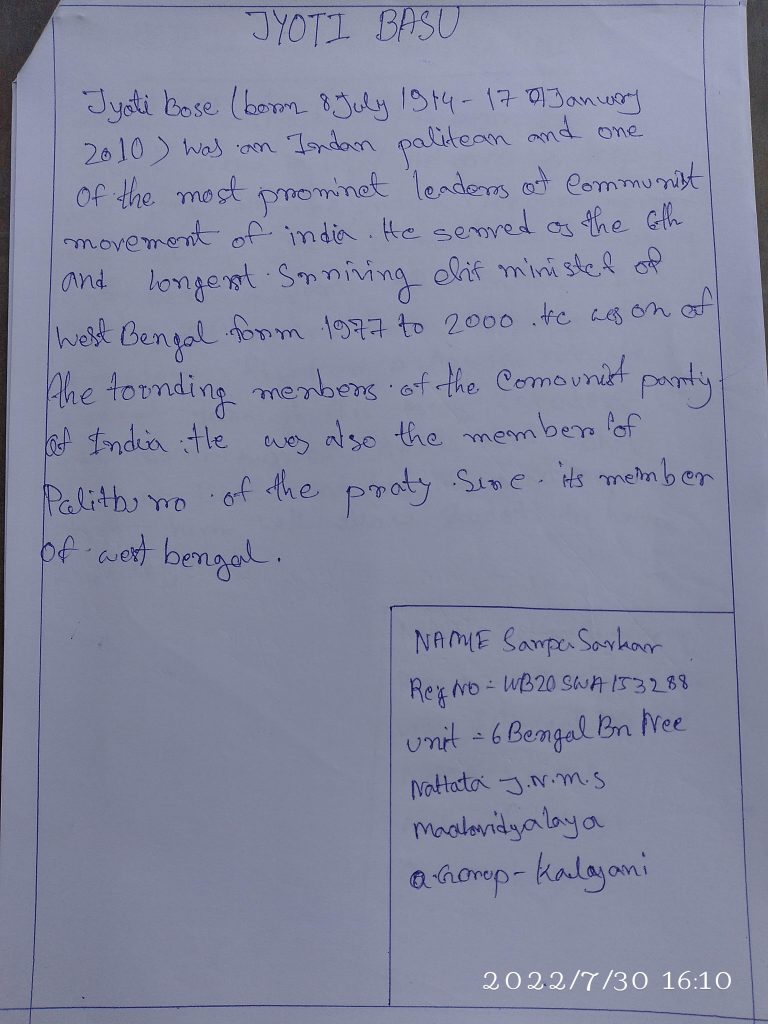 JYOTI BASU
Jyoti Bose (born 8 July 1914 - 17 January
2010) was an Indan palitean and one
of the most prominet leaders of Communist
movement of india. He served as the 6th
and longest Snriving chif ministet of
West Bengal form 1977 to 2000. He was on of
the founding menbers of the Comounist party
of India. He was also the member of
Palitburo of the praty Sine its member
of west bengal.
NAME Sampa Sarkar
Reg No = WB20SWA153288
unit = 6 Bengal Bn Ncc
J.N.M.S
Group - Kalayani
2022/7/30 16:10